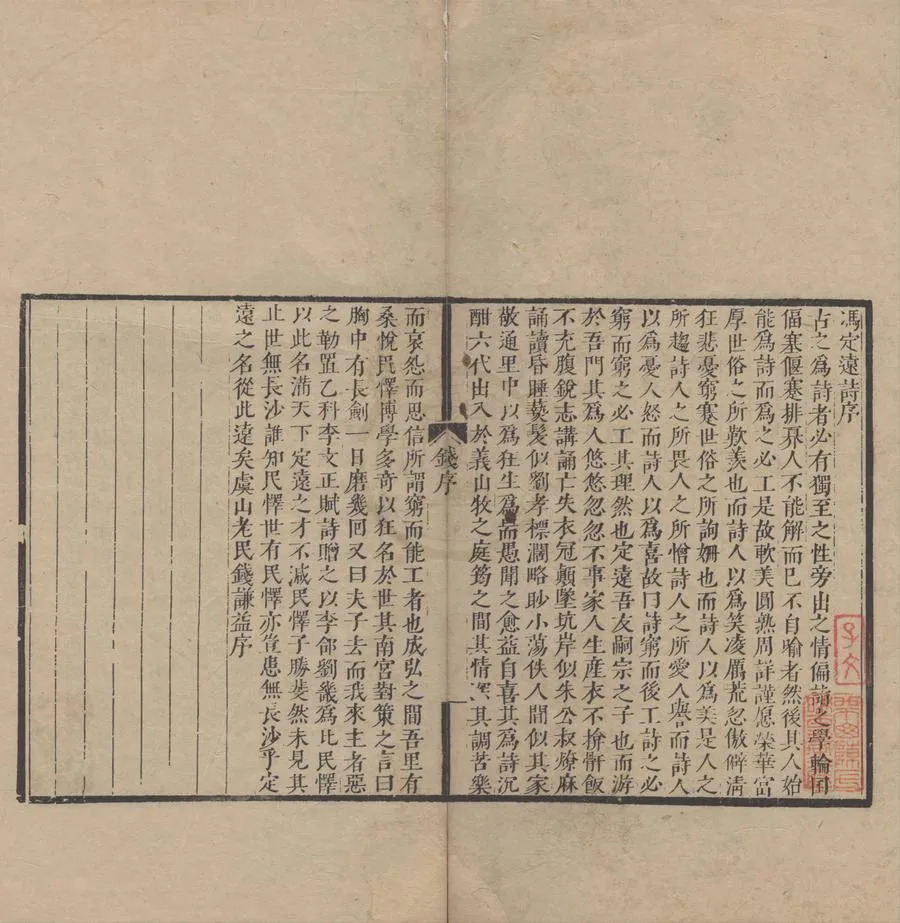 馮定遠詩序
古之爲詩者必有獨至之性旁出之情偏詣之學輪囷
偪塞偃蹇排奡人不能解而己不自喻者然後其人始
能爲詩而爲之必工是故軟美圓熟周詳謹愿榮華富
厚世俗之所歎羨也而詩人以爲笑凌厲荒忽傲僻淸
狂悲憂窮蹇世俗之所詢姍也而詩人以爲美是人之
所趨詩人之所畏人之所憎詩人之所愛人譽而詩人
以爲憂人怒而詩人以爲喜故曰詩窮而後工詩之必
窮而窮之必工其理然也定遠吾友嗣宗之子也而游
於吾門其爲人悠悠忽忽不事家人生産衣不掩骭飯
不充腹銳志講誦亡失衣冠顚墜坑岸似朱公叔燎麻
誦讀昏睡爇髮似劉孝標濶略眇小蕩佚人間似其家
敬通里中以爲狂生爲而愚聞之愈益自喜其爲詩沉
酣六代出入於義山牧之庭筠之間其情深其調苦樂
錢序
而哀怨而思信所謂窮而能工者也成弘之間吾里有
桑悅民懌博學多奇以狂名於世其南宮對策之言曰
胸中有長劍一日磨幾回又曰夫子去而我來主者惡
之勒置乙科李文正賦詩贈之以李郃劉蕡爲比民懌
以此名滿天下定遠之才不減民懌子勝斐然未見其
止世無長沙誰知民懌世有民懌亦豈患無長沙乎定
遠之名從此遠矣虞山老民錢謙益序
子文